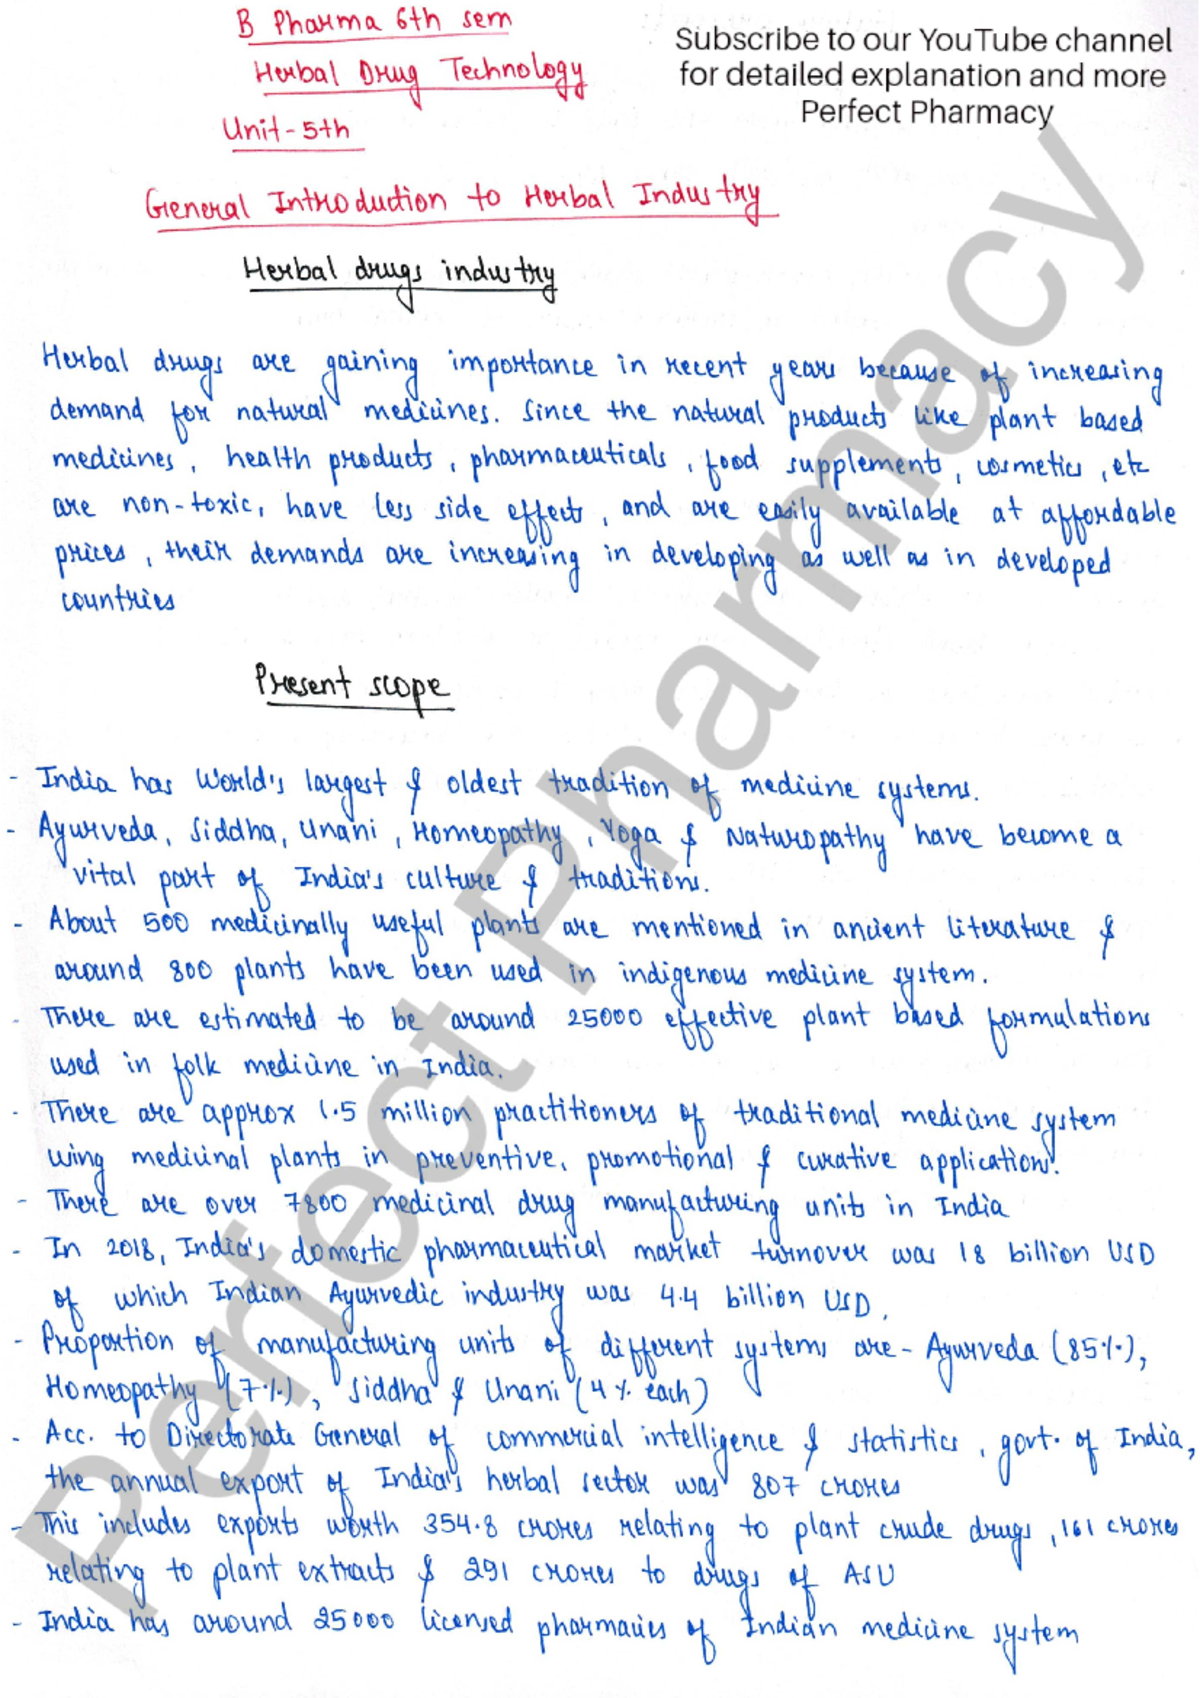 B Pharma 6th sem
Herbal Drug Technology
Unit-5th
Subscribe to our YouTube channel
for detailed explanation and more
Perfect Pharmacy
General Introduction to Herbal Industry
Herbal drugs industry
Herbal drugs are gaining importance in recent years because of increasing
demand for natural medicines. Since the natural products like plant based
medicines, health products, pharmaceuticals, food supplements, cosmetics, etc
are non-toxic, have less side effects, and are easily available at affordable
prices, their demands are increasing in developing as well as in developed
countries
Present scope
- India has World's largest & oldest tradition of medicine systems.
- Ayurveda, Siddha, Unani, Homeopathy, Yoga & Naturopathy have become a
vital part of India's culture & traditions.
- About 500 medicinally useful plants are mentioned in ancient literature &
around 800 plants have been used in indigenous medicine system.
- There are estimated to be around 25000 effective plant based formulations
used in folk medicine in India.
- There are approx 1.5 million practitioners of traditional medicine system
using medicinal plants in preventive, promotional & curative applications.
- There are over 7800 medicinal drug manufacturing units in India
- In 2018, India's domestic pharmaceutical market turnover was 18 billion USD
of which Indian Ayurvedic industry was 4.4 billion USD.
- Proportion of manufacturing units of different systems are - Ayurveda (85%),
Homeopathy (7%), Siddha & Unani (4% each)
- Acc. to Directorate General of commercial intelligence & statistics, govt. of India,
the annual export of India's herbal sector was 807 crores
- This includes exports worth 354.8 crores relating to plant crude drugs, 161 crores
relating to plant extracts & 291 crores to drugs of ASU
- India has around 25000 licensed pharmacies of Indian medicine system
Perfect Pharmacy